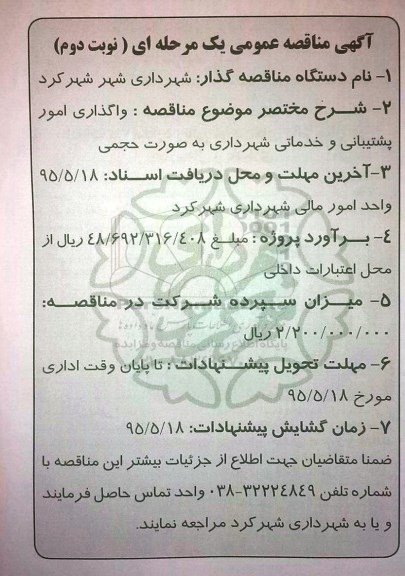 آگهی مناقصه عمومی یک مرحله ای ( نوبت دوم)
۱- نام دستگاه مناقصه گذار: شهرداری شهر شهرکرد
۲- شرح مختصر موضوع مناقصه : واگذاری امور
پشتیبانی و خدماتی شهرداری به صورت حجمی
۳-آخرین مهلت و محل دریافت اسناد: ۹۵/۵/۱۸
واحد امور مالی شهرداری شهرکرد
٤- برآورد پروژه : مبلغ ٤۸/۶۹۲/۳۱۶/٤۰۸ ریال از
محل اعتبارات داخلی
۵- میزان سپرده شرکت در مناقصه:
۲/۲۰۰/۰۰۰/۰۰۰ ریال
۶- مهلت تحویل پیشنهادات : تا پایان وقت اداری
مورخ ۹۵/۵/۱۸
۷- زمان گشایش پیشنهادات: ۹۵/۵/۱۸
ضمنا متقاضیان جهت اطلاع از جزئیات بیشتر این مناقصه با
شماره تلفن ۳۲۲۲٤۸٤۹-۰۳۸ واحد تماس حاصل فرمایند
و یا به شهرداری شهرکرد مراجعه نمایند.